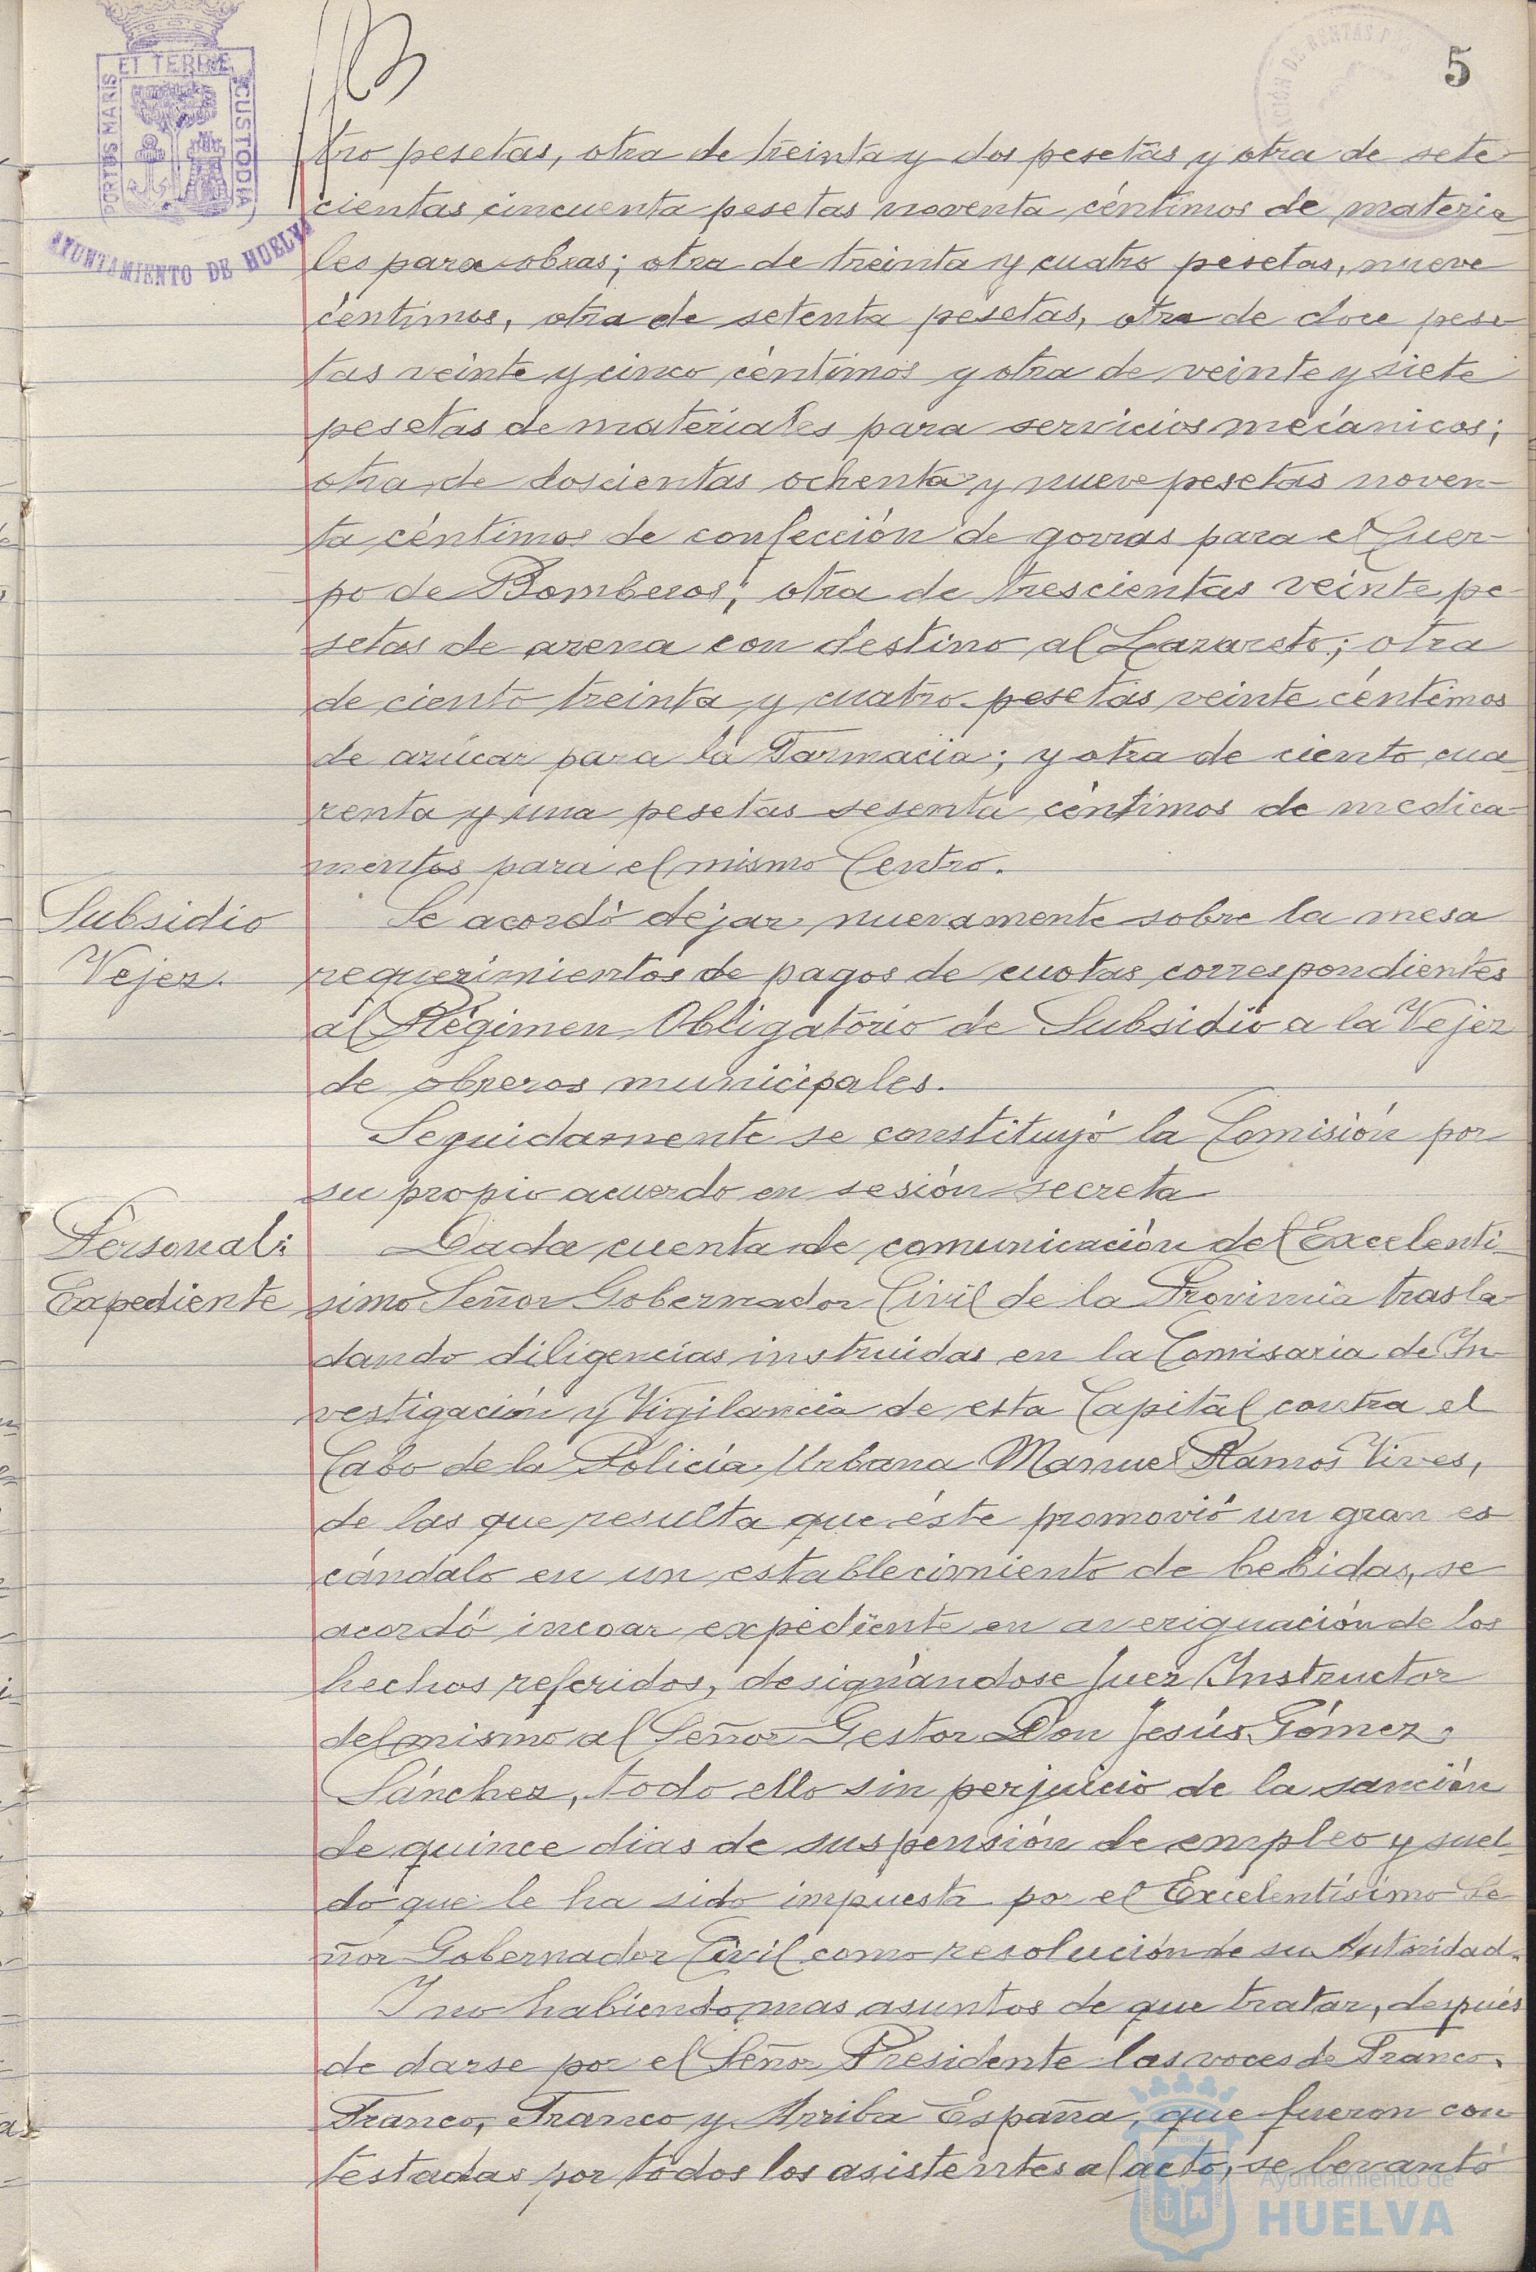 5
PORTUS MARIS ET TERRE CUSTODIA
AYUNTAMIENTO DE HUELVA
tro pesetas, otra de treinta y dos pesetas y otra de sete-
cientas cincuenta pesetas noventa céntimos de materia-
les para obras; otra de treinta y cuatro pesetas, nueve
céntimos, otra de setenta pesetas, otra de doce pese-
tas veinte y cinco céntimos y otra de veinte y siete
pesetas de materiales para servicios mecánicos;
otra de doscientas ochenta y nueve pesetas noven-
ta céntimos de confección de gorras para el Cuer-
po de Bomberos; otra de trescientas veinte pe-
setas de arena con destino al Lazareto; otra
de ciento treinta y cuatro pesetas veinte céntimos
de azúcar para la Farmacia; y otra de ciento cua-
renta y una pesetas sesenta céntimos de medica-
mentos para el mismo Centro.
Subsidio
Vejez.
Se acordó dejar nuevamente sobre la mesa
requerimientos de pagos de cuotas correspondientes
al Régimen Obligatorio de Subsidio a la Vejez
de obreros municipales.
Seguidamente se constituyó la Comisión por
su propio acuerdo en sesión secreta
Personal:
Expediente
Dada cuenta de comunicación del Excelentí-
simo Señor Gobernador Civil de la Provincia trasla-
dando diligencias instruidas en la Comisaria de In-
vestigación y Vigilancia de esta Capital contra el
Cabo de la Policía Urbana Manuel Ramos Vives,
de las que resulta que éste promovió un gran es-
cándalo en un establecimiento de bebidas, se
acordó incoar expediente en averiguación de los
hechos referidos, designándose Juez Instructor
del mismo al Señor Gestor Don Jesús Gómez
Sánchez, todo ello sin perjuicio de la sanción
de quince dias de suspensión de empleo y suel-
do que le ha sido impuesta por el Excelentísimo Se-
ñor Gobernador Civil como resolución de su Autoridad.
Y no habiendo mas asuntos de que tratar, después
de darse por el Señor Presidente las voces de Franco,
Franco, Franco y Arriba España, que fueron con
testadas por todos los asistentes al acto, se levantó
Ayuntamiento de
HUELVA